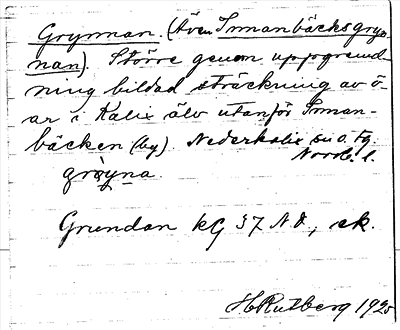 Grynnan. (Även Innanbäcksgryn-
nan). Större genom uppgrund-
ning bildad sträckning av ö-
ar i Kalix älv utanför Innan-
bäcken (by). Nederkalix sn o. tg.
Norrb. l.
Grundan kg 37 NO, ek.
HRutberg 1925